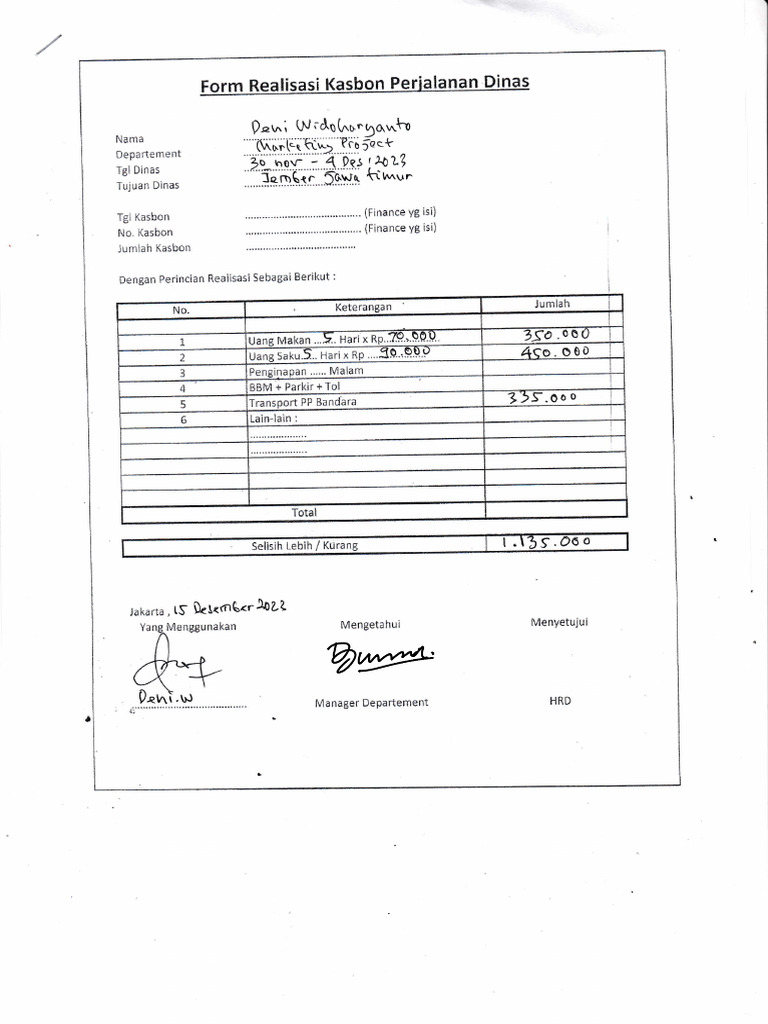 Form Realisasi Kasbon Perjalanan Dinas
Nama Deni Widoharyanto
Departement Marketing Project
Tgl Dinas 30 nov - 4 Des 2023
Tujuan Dinas Jember Jawa timur
Tgl Kasbon ........................................ (Finance yg isi)
No. Kasbon ........................................ (Finance yg isi)
Jumlah Kasbon ......................................
Dengan Perincian Realisasi Sebagai Berikut :
No. Keterangan Jumlah
1 Uang Makan ...5.. Hari x Rp...70.000 350.000
2 Uang Saku.5.. Hari x Rp ....90.000 450.000
3 Penginapan ...... Malam
4 BBM + Parkir + Tol
5 Transport PP Bandara 335.000
6 Lain-lain :
....................
....................
Total
Selisih Lebih / Kurang 1.135.000
Jakarta , 15 Desember 2023
Yang Menggunakan Mengetahui Menyetujui
Deni.W
Manager Departement HRD